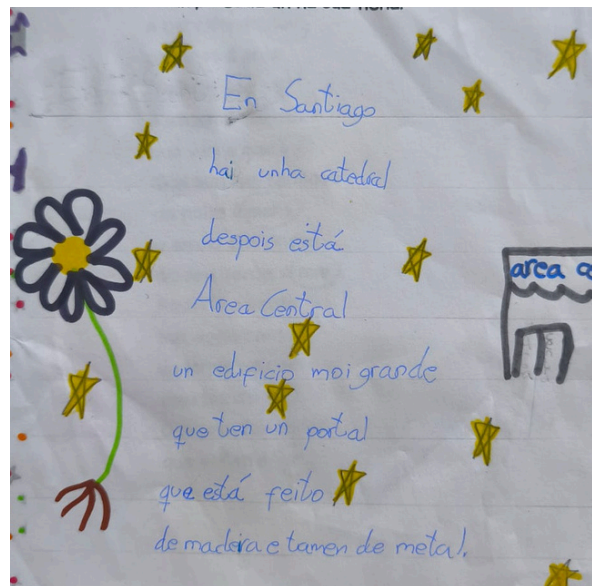 En Santiago
hai unha catedral
despois está
Area Central
area
un edificio moi grande
que ten un portal
que está feito
de madeira e tamen de metal.